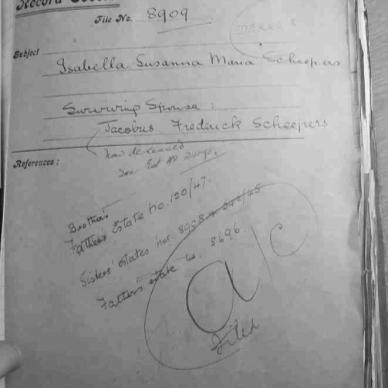 Record
File No. 8909
Subject
Isabella Susanna Maria Scheepers
Surviving Spouse:
Jacobus Frederick Scheepers
now deceased
See Est No
References:
Brother's
Father's Estate no. 120/47.
Sisters' Estates nos.
Father's estate no. 8696
a/c
Filed